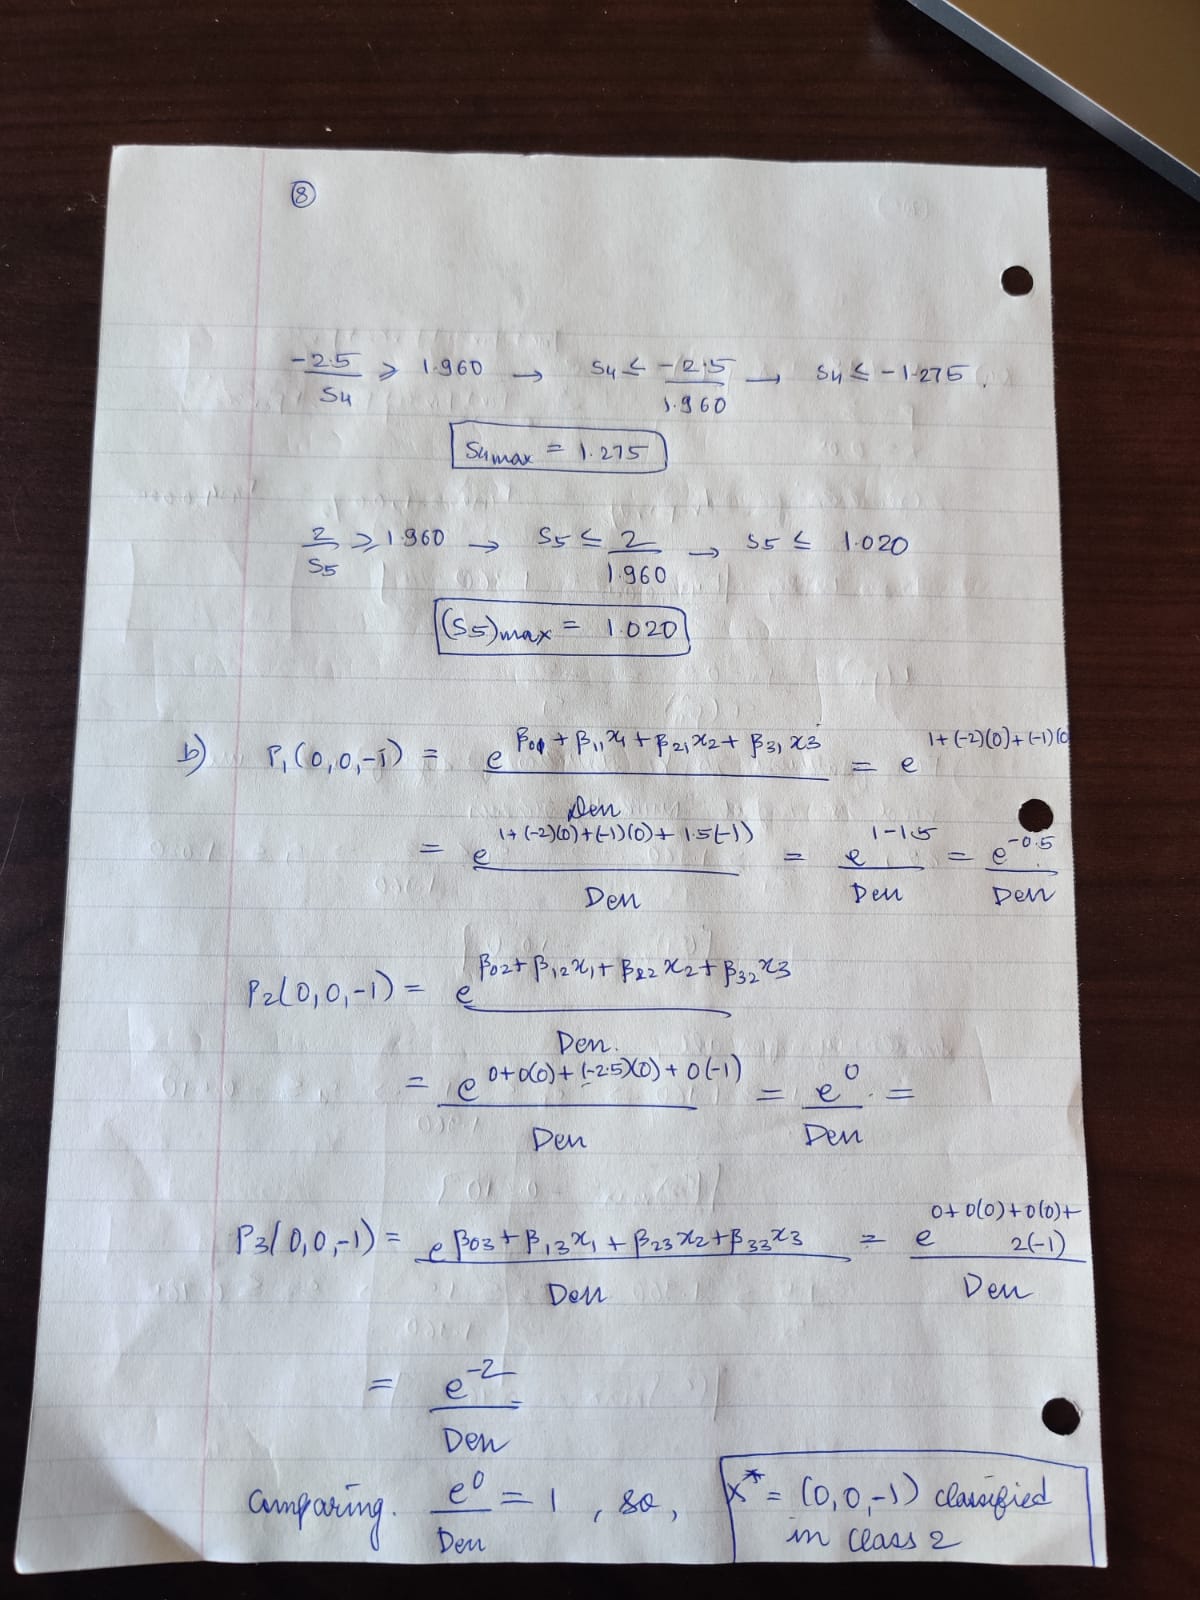 8
-2.5/S4 ⩾ 1.960 → S4 ≤ -2.5/1.960 → S4 ≤ -1.275.
S4max = 1.275
2/S5 ⩾ 1.960 → S5 ≤ 2/1.960 → S5 ≤ 1.020
(S5)max = 1.020
b) P₁(0,0,-1) = e^(β₀₁ + β₁₁x₁ + β₂₁x₂ + β₃₁x₃)/Den = e^(1+(-2)(0)+(-1)(0
= e^(1+(-2)(0)+(-1)(0)+1.5(-1))/Den = e^(1-1.5)/Den = e^(-0.5)/Den
P₂(0,0,-1) = e^(β₀₂+β₁₂x₁+β₂₂x₂+β₃₂x₃)/Den.
= e^(0+0(0)+(-2.5)(0)+0(-1))/Den = e^0/Den. =
P₃(0,0,-1) = e^(β₀₃+β₁₃x₁+β₂₃x₂+β₃₃x₃)/Den = e^(0+0(0)+0(0)+2(-1))/Den
= e^(-2)/Den
Comparing. e^0/Den = 1, so, x* = (0,0,-1) classified
in class 2